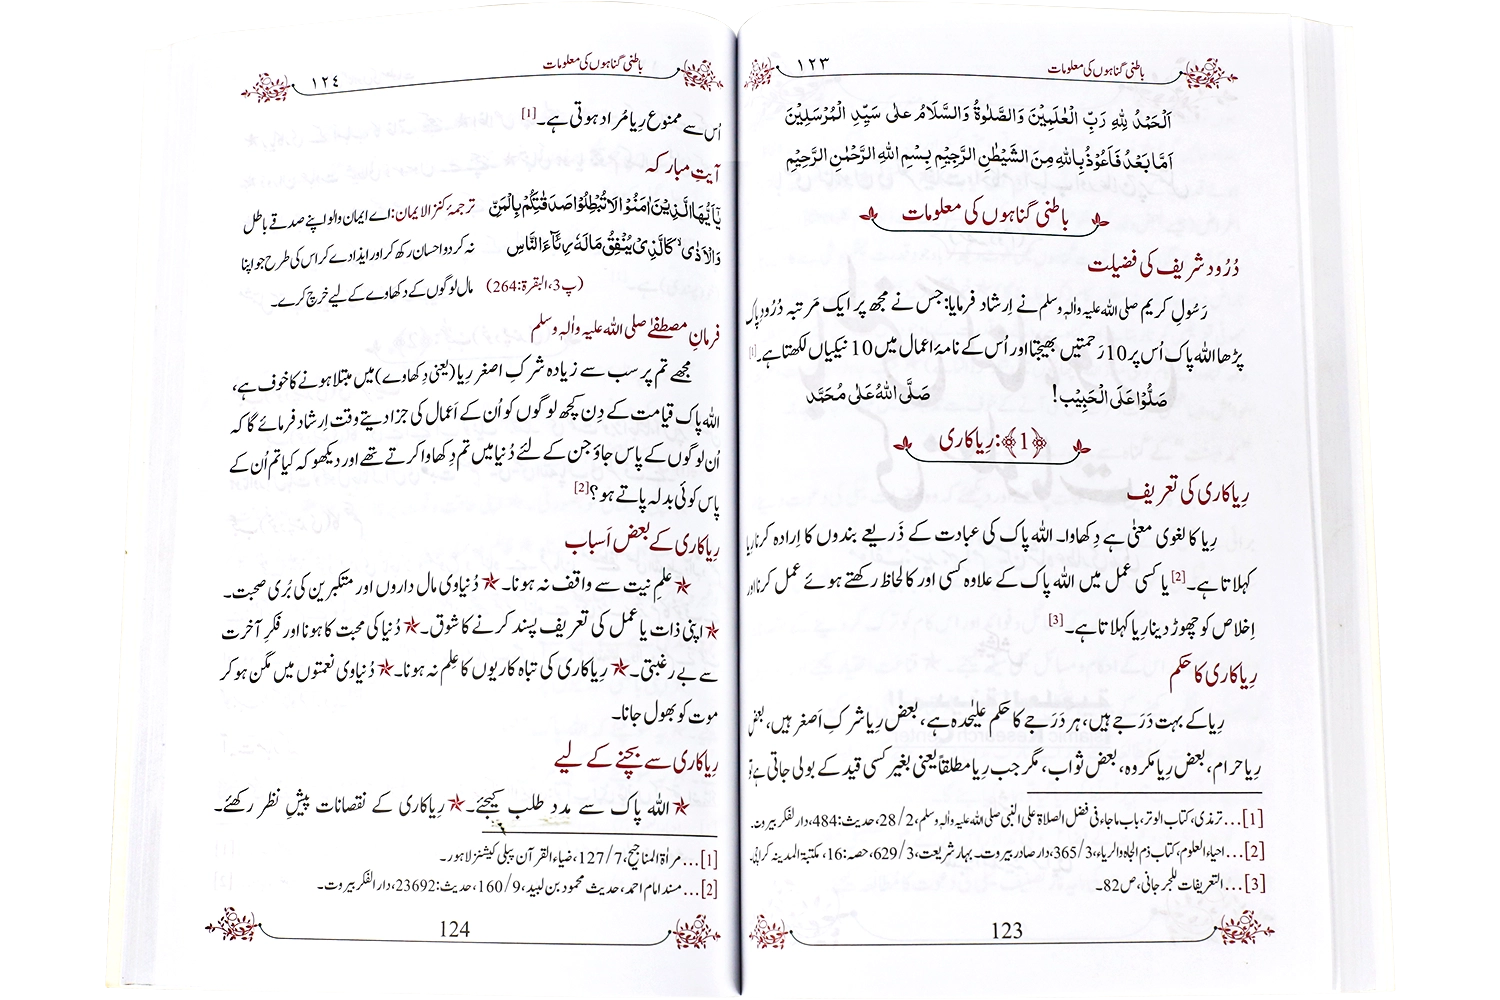 باطنی گناہوں کی معلومات
١٢٣
اَلْحَمْدُ لِلّٰهِ رَبِّ الْعٰلَمِیْنَ وَالصَّلٰوةُ وَالسَّلَامُ علٰی سَیِّدِ الْمُرْسَلِیْنَ
اَمَّا بَعْدُ فَاَعُوْذُ بِاللّٰهِ مِنَ الشَّیْطٰنِ الرَّجِیْمِ بِسْمِ اللّٰهِ الرَّحْمٰنِ الرَّحِیْمِ
باطنی گناہوں کی معلومات
دُرُود شریف کی فضیلت
رَسُولِ کریم صلی اللہ علیہ واٰلہٖ وسلم نے اِرشاد فرمایا: جس نے مجھ پر ایک مَرتبہ دُرُودِ پاک
پڑھا اللہ پاک اُس پر 10 رَحمتیں بھیجتا اور اُس کے نامۂ اعمال میں 10 نیکیاں لکھتا ہے۔[1]
صَلُّوْا عَلَی الْحَبِیْب! صَلَّی اللهُ عَلٰی مُحَمَّد
﴿1﴾: رِیاکاری
رِیاکاری کی تعریف
رِیا کا لغوی معنیٰ ہے دِکھاوا۔ اللہ پاک کی عبادت کے ذَریعے بندوں کا اِرادہ کرنا رِیا
کہلاتا ہے۔[2] یا کسی عمل میں اللہ پاک کے علاوہ کسی اور کا لحاظ رکھتے ہوئے عمل کرنا اور
اِخلاص کو چھوڑ دینا رِیا کہلاتا ہے۔[3]
رِیاکاری کا حکم
رِیا کے بہت دَرَجے ہیں، ہر دَرَجے کا حکم علیٰحدہ ہے، بعض رِیا شرکِ اَصغر ہیں، بعض
رِیا حرام، بعض رِیا مکروہ، بعض ثواب، مگر جب رِیا مطلقاً یعنی بغیر کسی قید کے بولی جاتی ہے تو
[1]... ترمذی، کتاب الوتر، باب ماجاء فی فضل الصلاة علی النبی صلی اللہ علیہ واٰلہٖ وسلم، 28/2، حدیث: 484، دار الفکر بیروت۔
[2]... احیاء العلوم، کتاب ذم الجاہ والریاء، 365/3، دار صادر بیروت۔ بہارِ شریعت، 629/3، حصہ: 16، مکتبۃ المدینہ کراچی۔
[3]... التعریفات للجرجانی، ص82۔
123
باطنی گناہوں کی معلومات
١٢٤
اُس سے ممنوع رِیا مُراد ہوتی ہے۔[1]
آیتِ مبارکہ
یٰۤاَیُّهَا الَّذِیْنَ اٰمَنُوْا لَا تُبْطِلُوْا صَدَقٰتِكُمْ بِالْمَنِّ ترجمۂ کنز الایمان: اے ایمان والو اپنے صدقے باطل
وَ الْاَذٰىۙ كَالَّذِیْ یُنْفِقُ مَالَهٗ رِئَآءَ النَّاسِ نہ کر دو احسان رکھ کر اور ایذا دے کر اس کی طرح جو اپنا
(پ3، البقرة: 264) مال لوگوں کے دکھاوے کے لیے خرچ کرے۔
فرمانِ مصطفےٰ صلی اللہ علیہ واٰلہٖ وسلم
مجھے تم پر سب سے زیادہ شرکِ اصغر رِیا (یعنی دِکھاوے) میں مبتلا ہونے کا خوف ہے،
اللہ پاک قیامت کے دِن کچھ لوگوں کو اُن کے اَعمال کی جزا دیتے وقت اِرشاد فرمائے گا کہ
اُن لوگوں کے پاس جاؤ جن کے لئے دُنیا میں تم دِکھاوا کرتے تھے اور دیکھو کہ کیا تم اُن کے
پاس کوئی بدلہ پاتے ہو؟[2]
رِیاکاری کے بعض اَسباب
★ علمِ نیت سے واقف نہ ہونا۔ ★ دُنیاوی مال داروں اور متکبرین کی بُری صحبت۔
★ اپنی ذات یا عمل کی تعریف پسند کرنے کا شوق۔ ★ دُنیا کی محبت کا ہونا اور فکرِ آخرت
سے بے رغبتی۔ ★ رِیاکاری کی تباہ کاریوں کا عِلم نہ ہونا۔ ★ دُنیاوی نعمتوں میں مگن ہو کر
موت کو بھول جانا۔
رِیاکاری سے بچنے کے لیے
★ اللہ پاک سے مدد طلب کیجئے۔ ★ رِیاکاری کے نقصانات پیشِ نظر رکھئے۔
[1]... مرأۃ المناجیح، 127/7، ضیاء القرآن پبلی کیشنز لاہور۔
[2]... مسند امام احمد، حدیث محمود بن لبید، 160/9، حدیث: 23692، دار الفکر بیروت۔
124